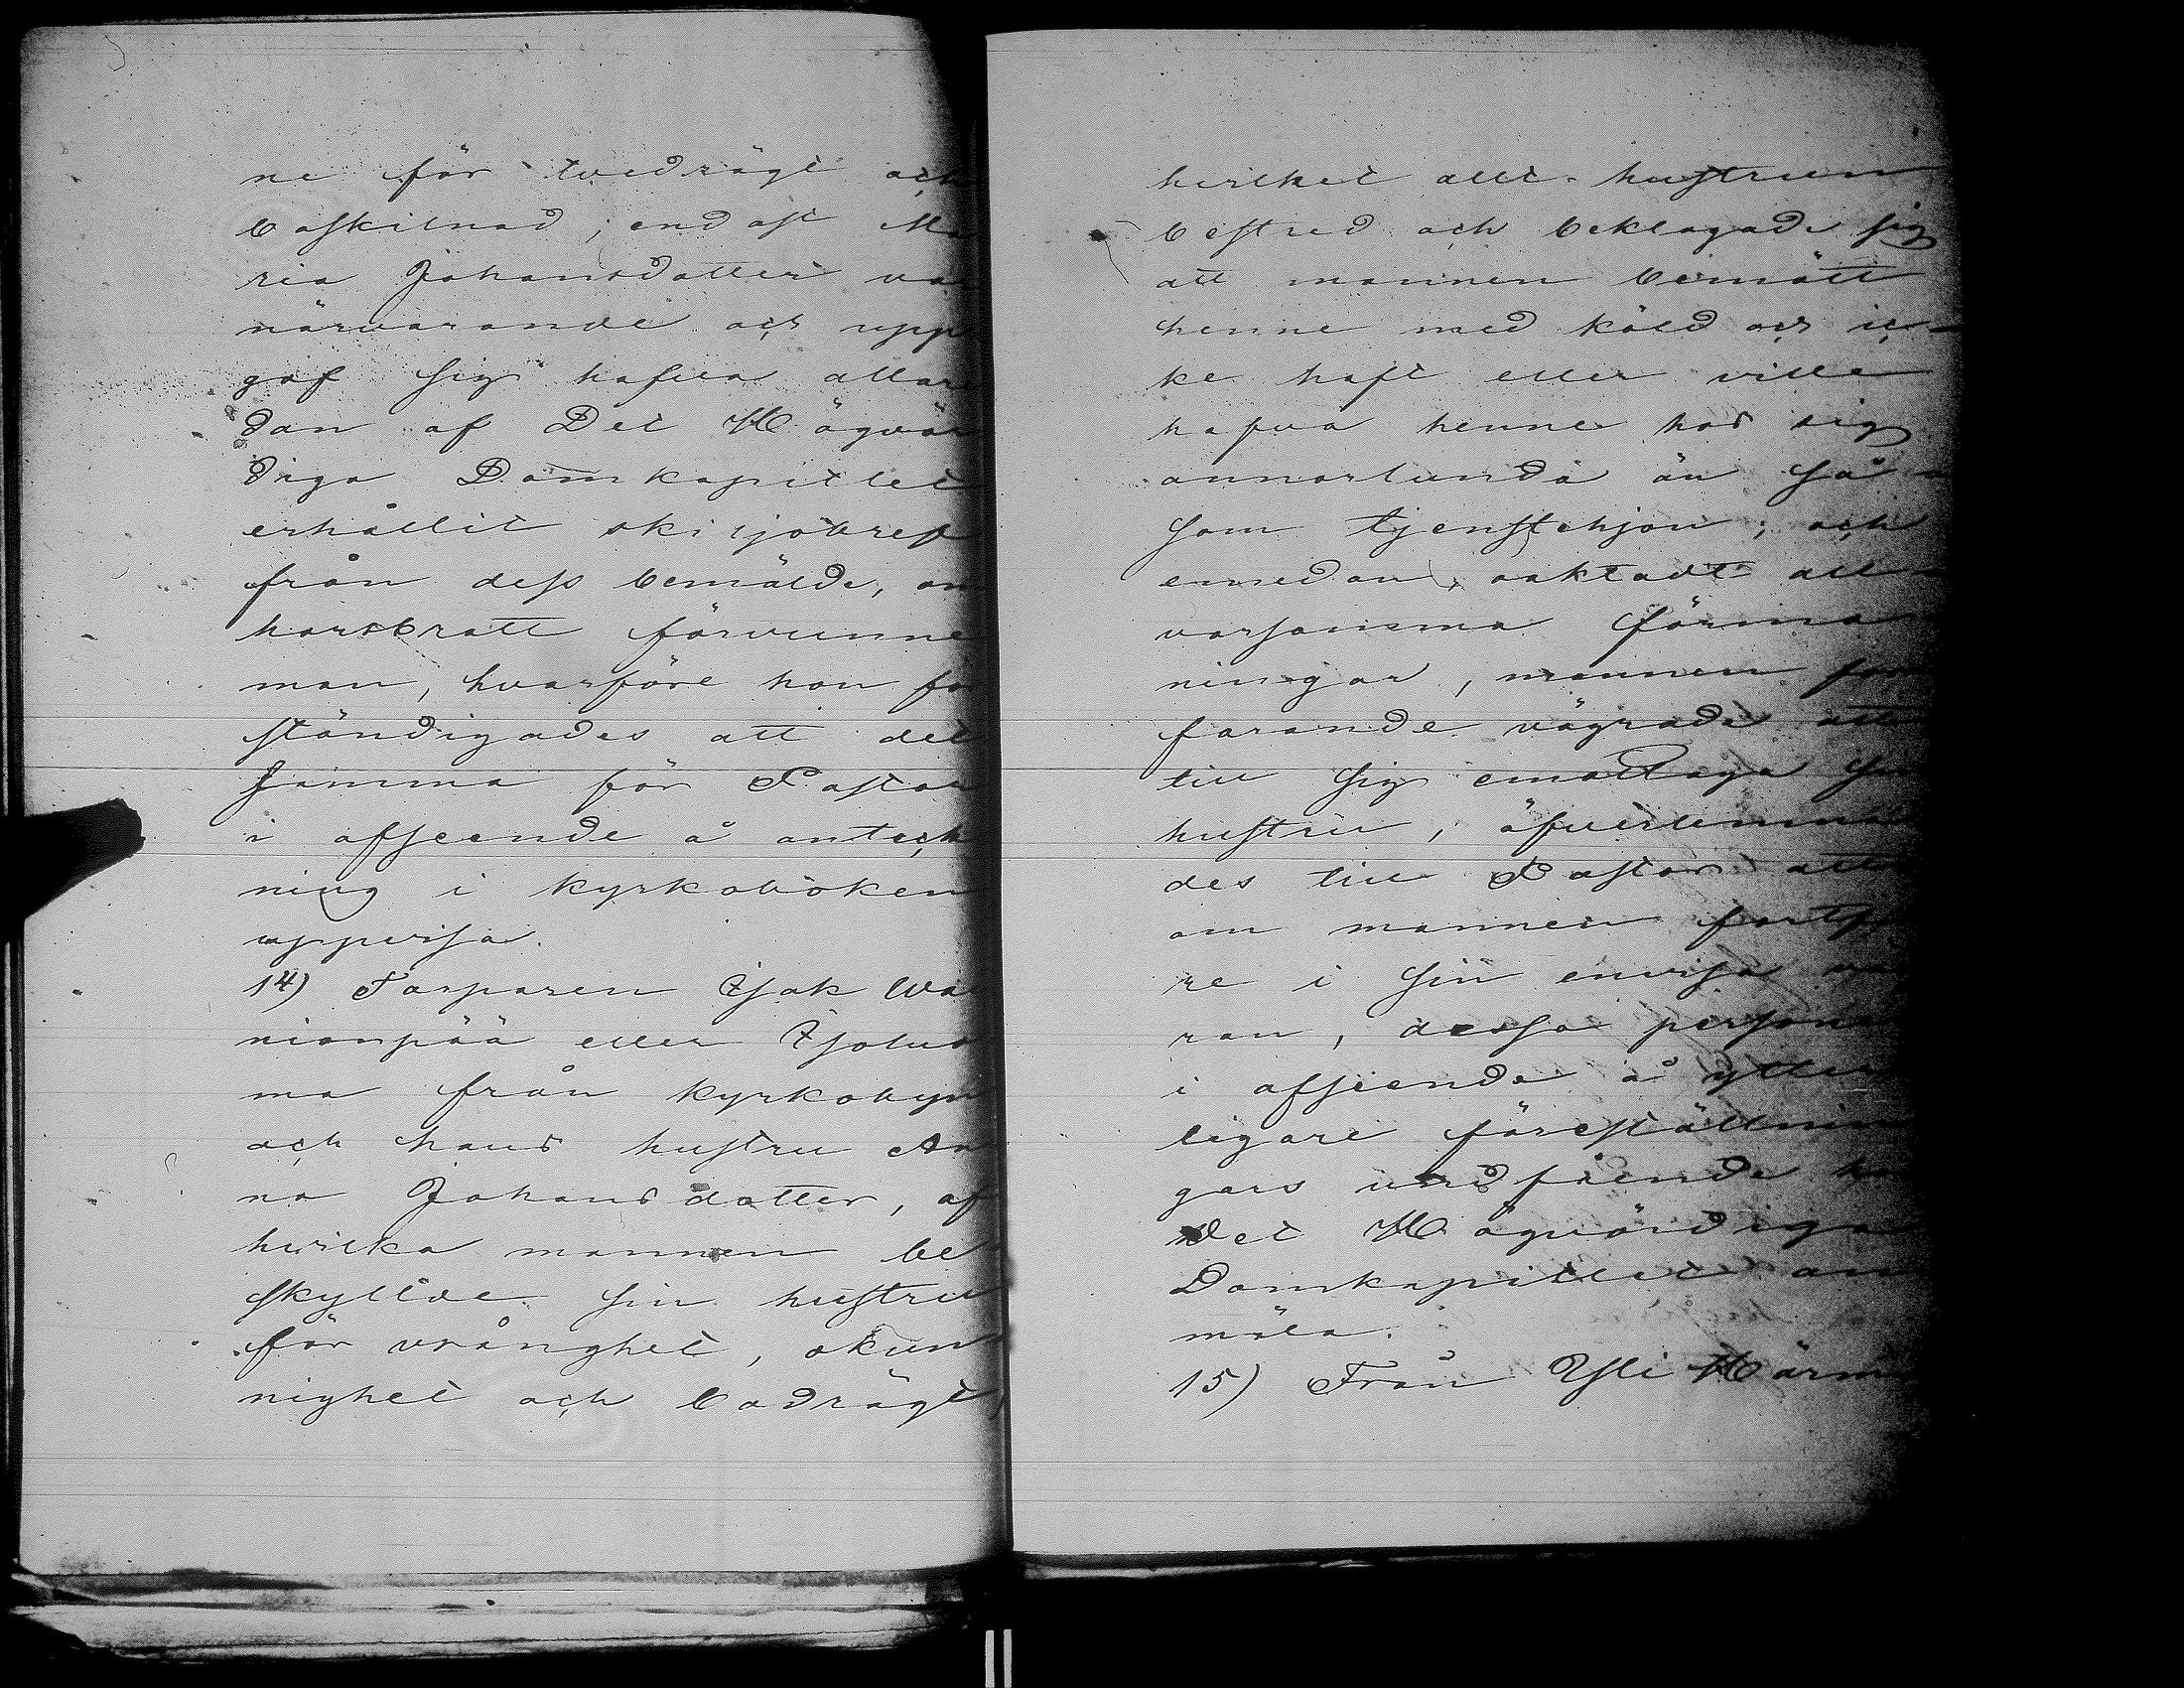 ne för tvedrägt och
boskilnad, endast Ma
ria Johansdotter var
närvarande och upp
gaf sig hafva allare
dan af Det Högvör
diga Domkapitlet
erhållit skiljobref
från dess bemälde, om
horsbrott förvunne
man, hvarföre hon för
ständigades att det
samma för Pastor
i afseende å anteck
ning i kyrkoboken
uppvisa.
14) Torparen Isak Wai
nionpää eller Isoluo
ma från kyrkobyn
och hans hustru An
na Johansdotter, af
hvilka mannen be
skyllde sin hustru
för vrånghet, okun
nighet och bodrägt,
hvilket allt hustrun
bestred och beklagade sig
att mannen bemött
henne med köld och ic-
ke haft eller ville
hafva henne hos sig
annorlunda än så-
som tjenstehjon; och
emedan, oaktadt all-
varsamma förma
ningar, mannen fort
farande vägrade att
till sig emottaga sin
hustru, öfverlemna
des till Pastor att
om mannen fortfo
re i sin envisa
ran, dessa personer
i afseende å ytter
ligare föreställnin
gars undfående hos
det Högvördiga
Domkapitlet an
mäla.
15) Från Ylli Härm